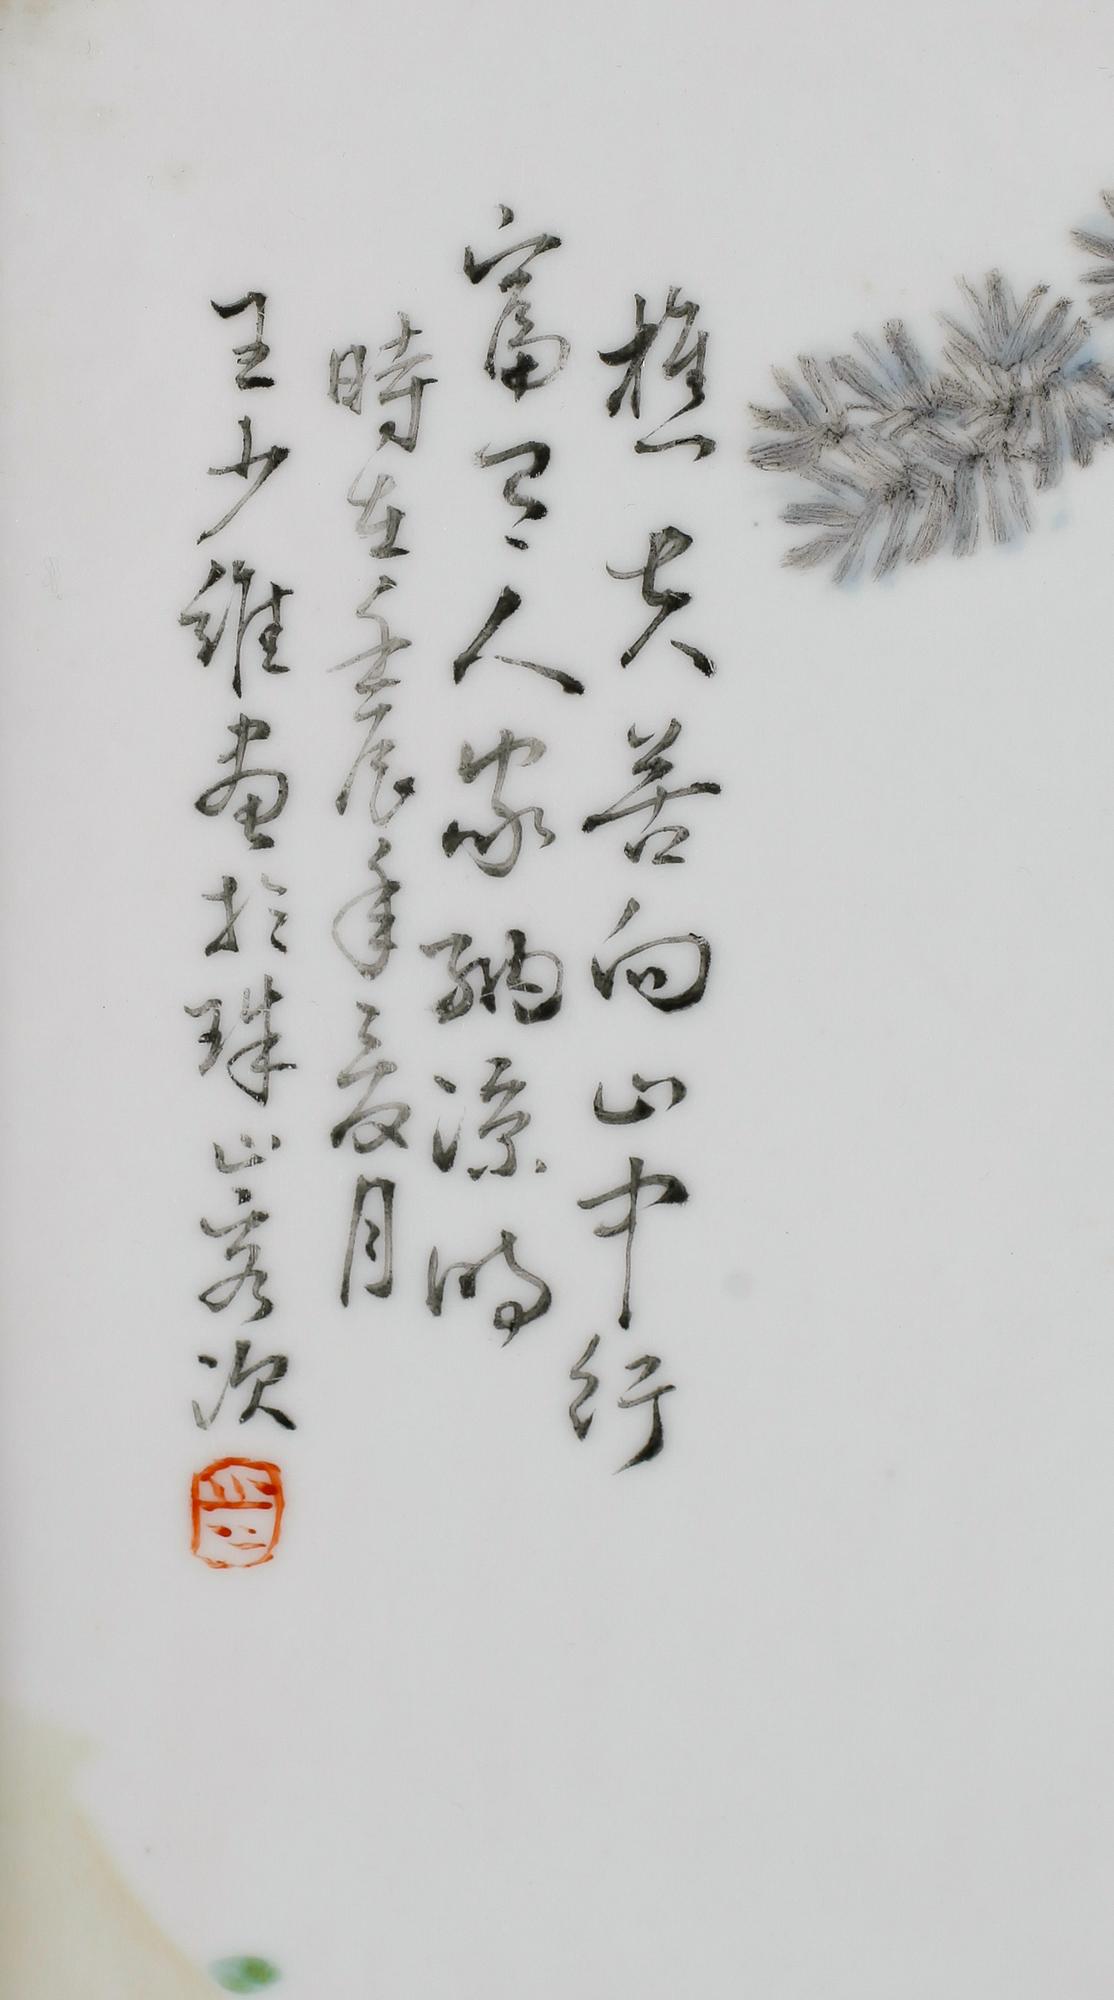 樵夫苦向山中行
富有人家納涼時
時在壬辰年夏月
王少維画於珠山客次